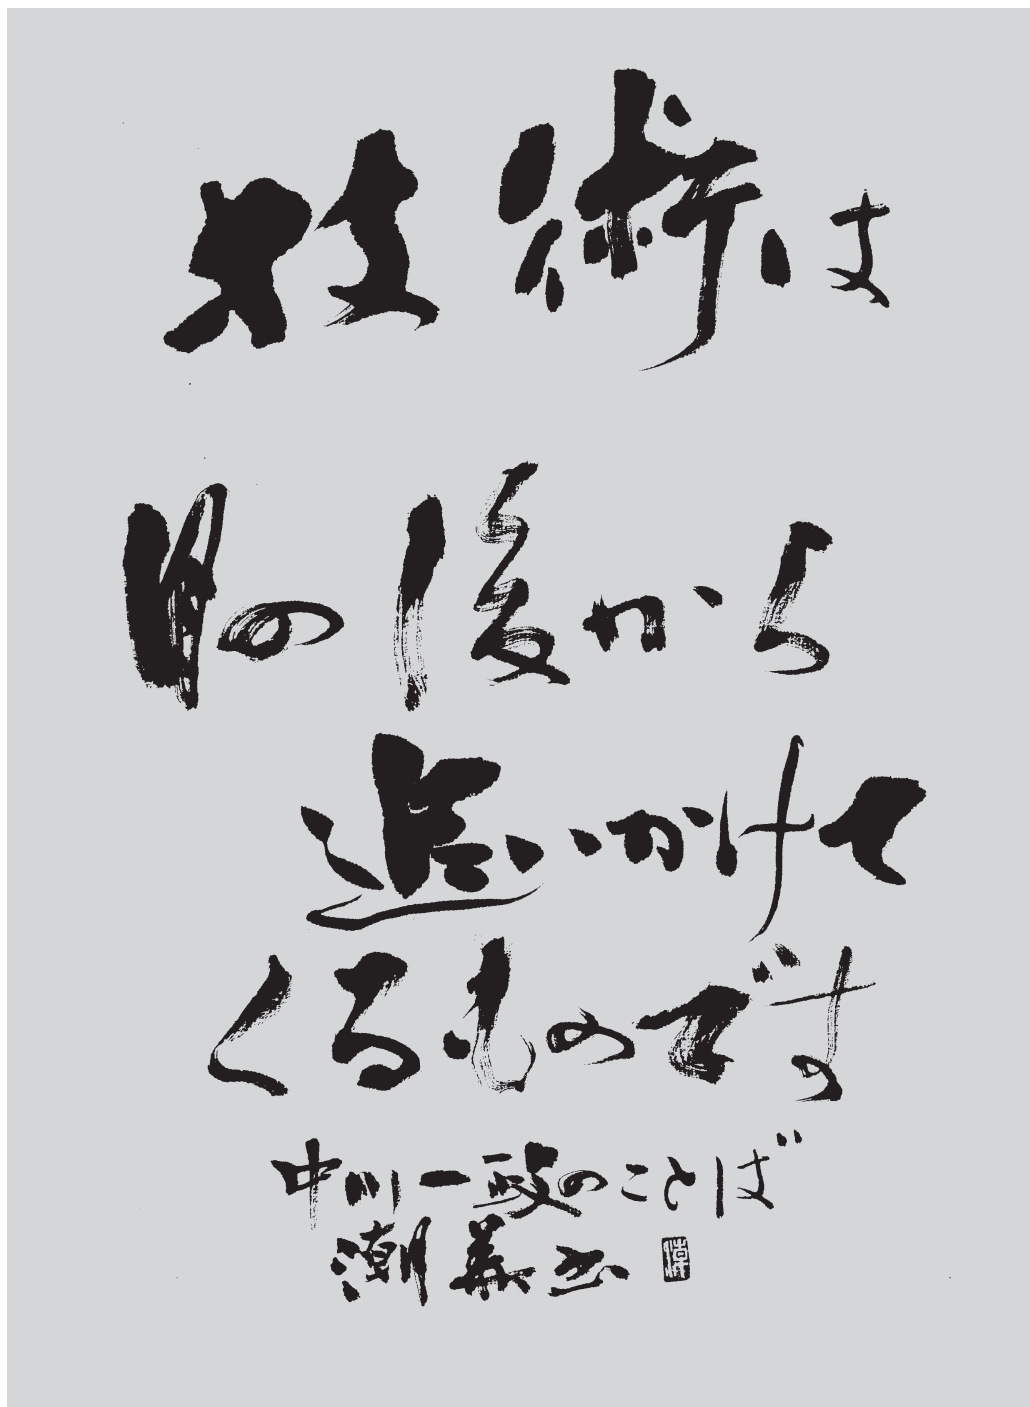 技術は
目の後から
追いかけて
くるものです
中川一政のことば
潮義書